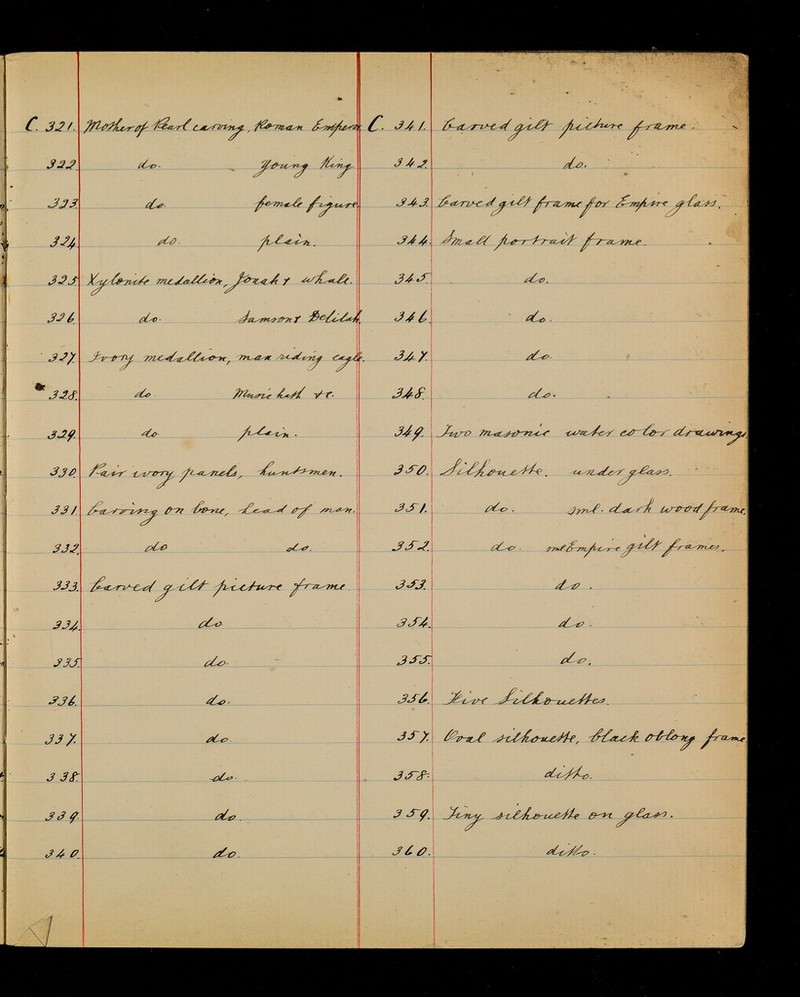 C. 321. Mother of Pearl carving, Roman Emperor
322 do. young King
323. do female figure
324. do. plain.
325 Xylonite medallion, Jonah & whale.
326. do. Samson & Delilah.
327. Ivory medallion, man riding eagle.
328. do. Music hath &c.
329. do. plain.
330. Pair ivory panels, huntsmen.
331. Carving on bone, head of man.
332. do do.
333. Carved gilt picture frame.
334. do
335. do.
336. do.
337. do.
338. do.
339. do.
340. do.
C. 341. Carved gilt picture frame.
342. do.
343. Carved gilt frame for Empire glass.
344. Small portrait frame.
345. do.
346. do.
347. do.
348. do.
349. Two masonic water color drawings.
350. Silhouette. under glass.
351. do. sml. dark wood frame.
352. do. Empire gilt frames.
353. do.
354. do.
355. do.
356. Five Silhouettes.
357. Oval silhouette, black oblong frame
358. ditto.
359. Tiny silhouette on glass.
360. ditto.